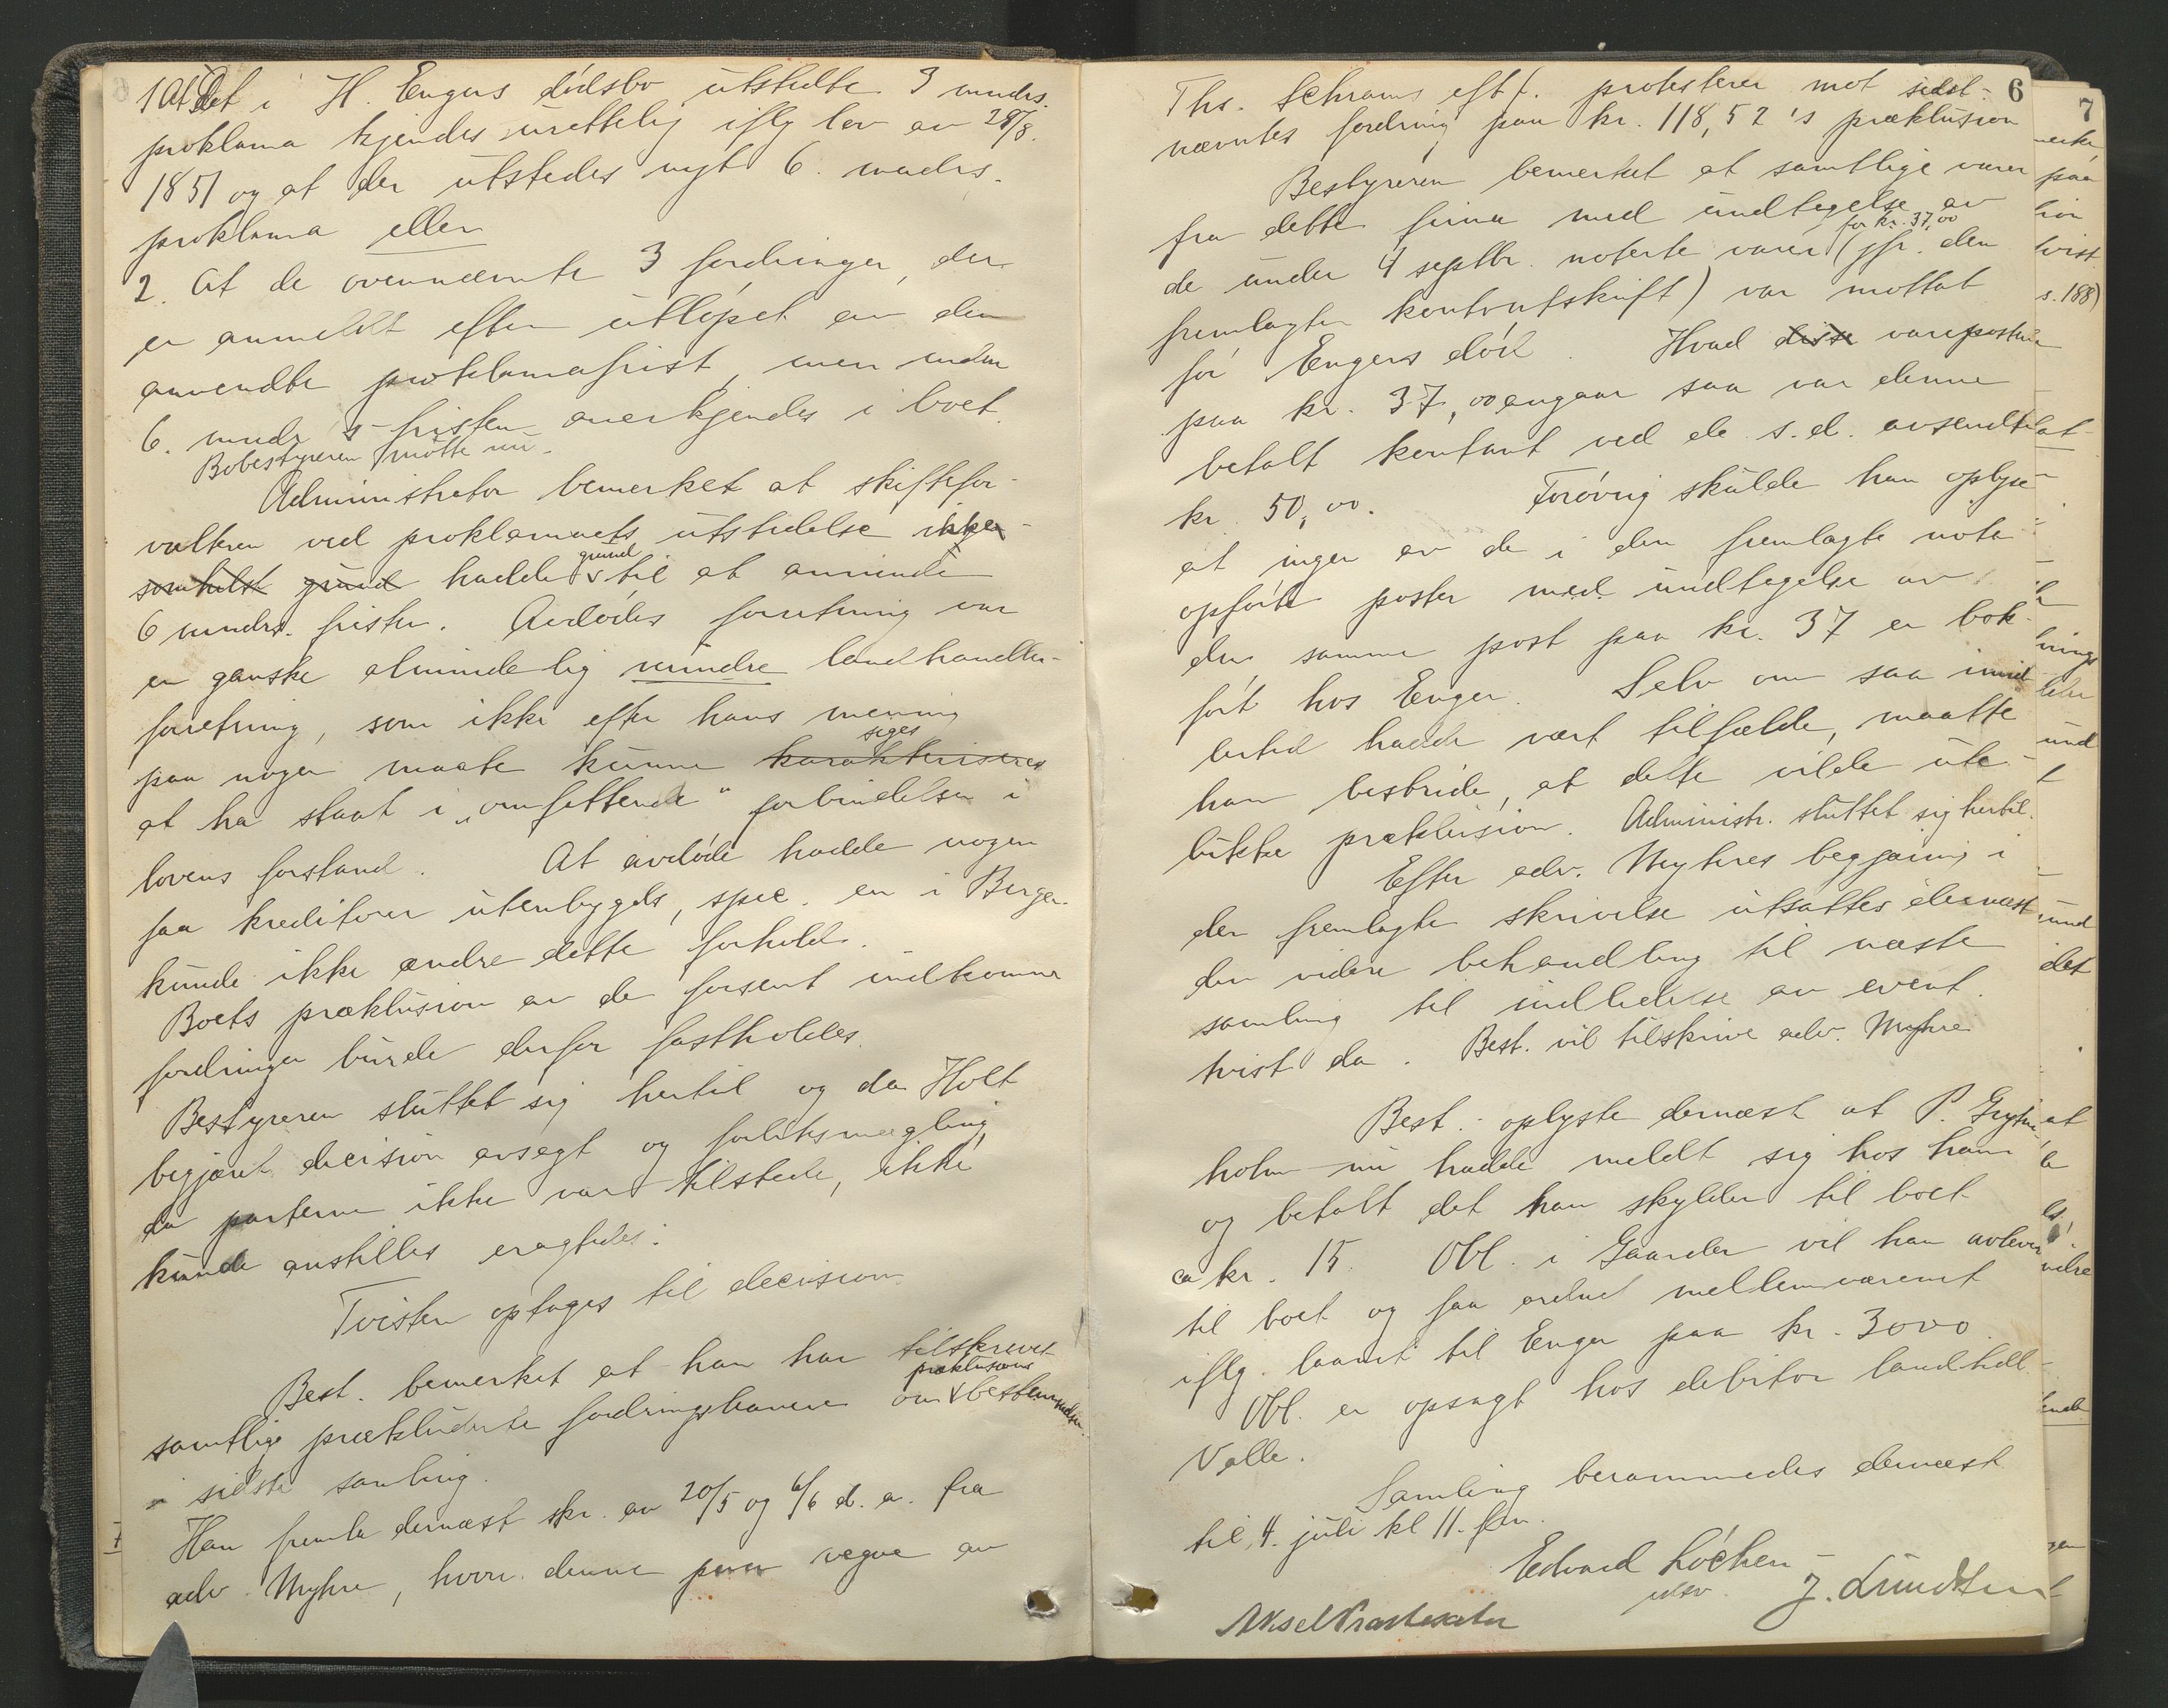 1 At det i H. Engers dödsbo utstedte 3 mndrs.
proklama kjendes urettelig iflg lov av 28/8.
1851 og at der utstedes nyt 6. mndrs.
proklama eller
2. At de ovennævnte 3 fordringer, der
er anmeldt efter utlöpet av den
anvendte proklamafrist, men inden
6. mndr s fristen anerkjendes i boet.
Bobestyreren mötte nu.
Administrator bemerket at skiftefor-
valteren ved proklamaets utstedelse ikke
somhelst grund hadde grund til at anvende
6 mndrs. fristen. Avdödes forretning var
en ganske almindelig mindre landhandler-
forretning, som ikke efter hans mening
paa nogen maate kunne karakteriseres siges
at ha staat i "omfattende" forbindelser i
lovens forstand. At avdöde hadde nogen
faa kreditorer utenbygds, spec. en i Bergen
kunde ikke ændre dette forhold.
Boets præklusion av de forsent indkomne
fordringer burde derfor fastholdes.
Bestyreren sluttet sig hertil og da Holt
begjæret decision avsagt og forliksmægling,
da parterne ikke var tilstede, ikke
kunde anstilles eragtedes:
Tvisten optages til decision.
Best. bemerket at han har tilskrevet
samtlige prækluderte fordringshavere om præklusions bestemmelsen
i sidste samling.
Han fremla dernæst skr. av 20/5 og 6/6 d. a. fra
adv. Myhre, hvori denne paa vegne av
6
Ths. Schrams eftf. protesterer mot sidst-
nævntes fordring paa kr. 118,52 's præklusion
Bestyreren bemerket at samtlige varer
fra dette firma med undtagelse av
de under 4 septbr. noterte varer for kr. 37,00 (jfr. den
fremlagte kontoutskrift) var mottat
för Engers död. Hvad disse vareposten
paa kr. 37,00 angaar saa var denne
betalt kontant ved de s.d. avsendte
kr. 50,00. Forövrig skulde han oplyse
at ingen av de i den fremlagte nota
opförte poster med undtagelse av
den samme post paa kr. 37 er bok-
fört hos Enger. Selv om saa imid-
lertid hadde vært tilfælde, maatte
han bestride, at dette vilde ute-
lukke præklusion. Administr. sluttet sig hertil.
Efter adv. Myhres begjæring i
den fremlagte skrivelse utsattes dernæst
den videre behandling til næste
samling til indledelse av event.
tvist da. Best. vil tilskrive adv. Myhre
Best. oplyste dernæst at P. Grythe-
holm nu hadde meldt sig hos ham
og betalt det han skylder til boet
ca kr. 15. Obl. i Gaarder vil han avlevere
til boet og faa ordnet mellemværendet
iflg. laanet til Enger paa kr. 3000.
Obl. er opsagt hos debitor landhdl.
Valle.
Samling berammedes dernæst
til 4. juli kl 11. fm.
Edvard Löchen
J. Lundsten
7
s. 188)